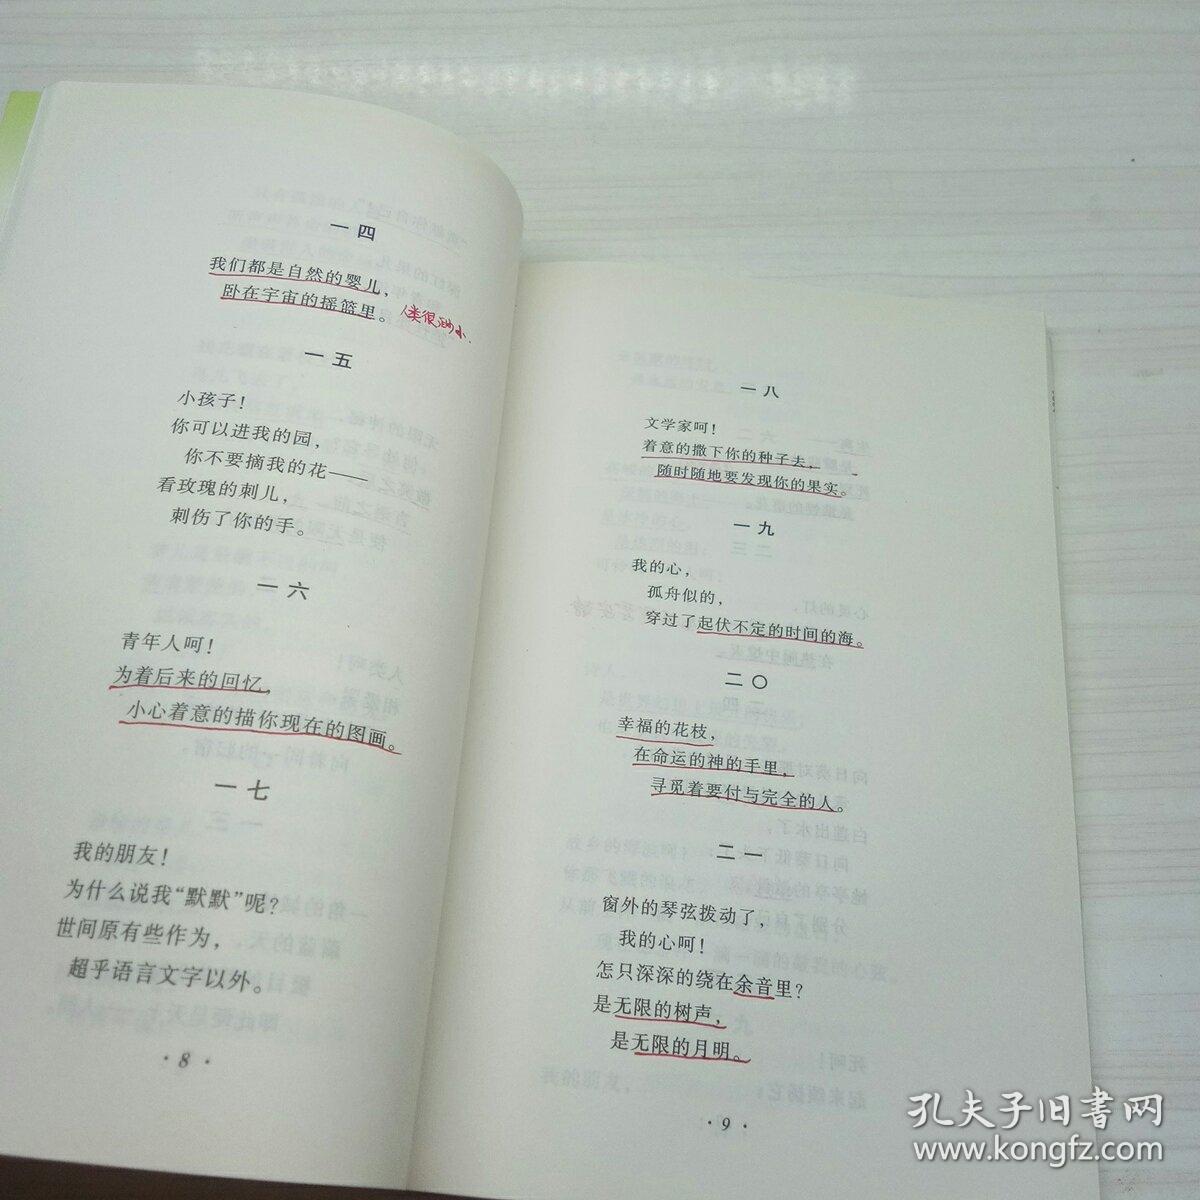 一四
我们都是自然的婴儿，
卧在宇宙的摇篮里。
人类很渺小.
一五
小孩子！
你可以进我的园，
你不要摘我的花——
看玫瑰的刺儿，
刺伤了你的手。
一六
青年人呵！
为着后来的回忆，
小心着意的描你现在的图画。
一七
我的朋友！
为什么说我“默默”呢？
世间原有些作为，
超乎语言文字以外。
·8·
一八
文学家呵！
着意的撒下你的种子去，
随时随地要发现你的果实。
一九
我的心，
孤舟似的，
穿过了起伏不定的时间的海。
二〇
幸福的花枝，
在命运的神的手里，
寻觅着要付与完全的人。
二一
窗外的琴弦拨动了，
我的心呵！
怎只深深的绕在余音里？
是无限的树声，
是无限的月明。
·9·
孔夫子旧书网
www.kongfz.com